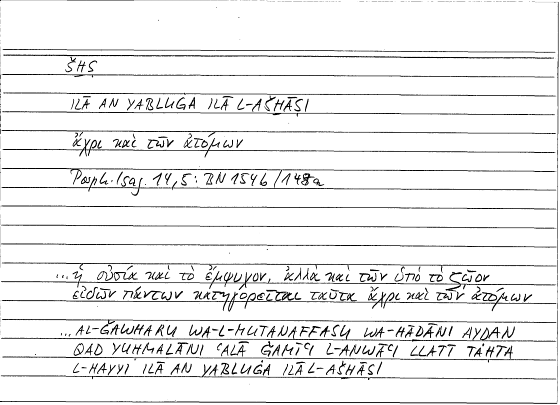 ŠH̱Ṣ
ILĀ AN YABLUĠA ILĀ L-AŠH̱ĀṢI
ἄχρι καὶ τῶν ἀτόμων
Porph. Isag. 14, 5 : BN 1546 / 148a
...ἡ οὐσία καὶ τὸ ἔμψυχον, ἀλλὰ καὶ τῶν ὑπὸ τὸ ζῷον
εἰδῶν πάντων κατηγορεῖται ταῦτα ἄχρι καὶ τῶν ἀτόμων
...AL-ĞAWHARU WA-L-MUTANAFFASU WA-HĀḎĀNI AYḌAN
QAD YUḤMALĀNI ʿALĀ ĞAMĪʿI L-ANWĀʿI LLATĪ TAḤTA
L-ḤAYYI ILĀ AN YABLUĠA ILĀ L-AŠH̱ĀṢI